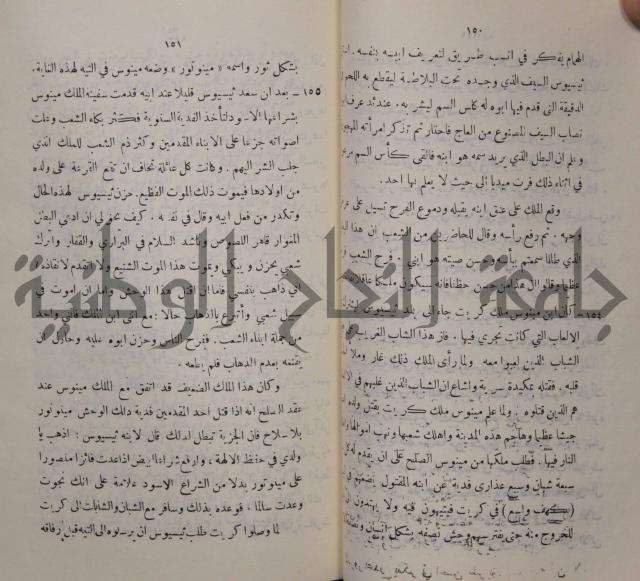 ١٥٠
الهام يفكر في انسب طريق لتعريف ابيه بنفسه .
ثيسيوس السيف الذي وجده تحت البلاطة ليقطع به اللحم
الدقيقة التي قدم فيها ابوه له كأس السم ليشربه . عندئذ عرف
نصاب السيف المصنوع من العاج فاحتار ثم تذكر امرأته
وعلم ان البطل الذي يريد سمه هو ابنه فالقى كأس السم
في اثناء ذلك فرت ميديا الى حيث لا يعلم بها احد .
وقع الملك على عنق ابنه يقبله ودموع الفرح تسيل على
وجهه . ثم رفع رأسه وقال للحاضرين من الشعب ان هذا
الذي طالما سمعتم بأسه وحسن صيته هو ابني . فرح الشعب
عظيما وقالوا ان هذا من حسن حظنا فانه سيكون ملكا عاقلا
١٥٤ – كان ابن مينوس ملك كريت جاء الى
الالعاب التي كانت تجري فيها . فاز هذا الشاب الغريب
الشباب الذين لعبوا معه ولما رأى الملك ذلك غار
قلبه . فقتله بمكيدة سرية واشاع ان الشباب الذين غلبهم في
هم الذين قتلوه . ولما علم مينوس ملك كريت بقتل ولده
جيشا عظيما وهاجم هذه المدينة واهلك شعبها ونهب اموالها
النار فيها . فطلب ملكها من مينوس الصلح على ان يقدم له
سبعة شبان وسبع عذارى فدية عن ابنه المقتول يضعهم في
(كهف واسع) في كريت فيتيهون فيه ولا يهتدون
للخروج منه حتى يفترسهم وحش نصفه بشكل انسان ونصفه
١٥١
بشكل ثور واسمه « مينوتور » وضعه مينوس في التيه لهذه الغاية .
١٥٥ – بعد ان سعد ثيسيوس قليلا عند ابيه قدمت سفينة الملك مينوس
بشراعها الاسود لتأخذ الفدية السنوية فكثر بكاء الشعب وعلت
اصواته جزعا على الابناء المقدمين وكثر ذم الشعب للملك الذي
جلب الشر اليهم . وكانت كل عائلة تخاف ان تقع القرعة على ولد
من اولادها فيموت ذلك الموت الفظيع . حزن ثيسيوس لهذه الحال
وتكدر من فعل ابيه وقال في نفسه . كيف يجوز لي ان ادعى البطل
المغوار قاهر اللصوص وناشد السلام في البراري والقفار واترك
شعبي يحزن ويبكي ويموت هذا الموت الشنيع ولا اتقدم لانقاذه
اني ذاهب بنفسي فاما ان اقتل هذا الوحش واما ان اموت في
سبيل شعبي واتبرع بالذهاب حالا مع اني ابن الملك فاني واحد
من جملة ابناء الشعب . ففرح الناس وحزن ابوه عليه وحاول ان
يقنعه بعدم الذهاب فلم يطعه .
وكان هذا الملك الضعيف قد اتفق مع الملك مينوس عند
عقد الصلح انه اذا قتل احد المقدمين فدية ذلك الوحش مينوتور
بلا سلاح فان الجزية تبطل لذلك قال لابنه ثيسيوس : اذهب يا
ولدي في حفظ الالهة ، وارفع شراعا ابيض اذا عدت فائزا منصورا
على مينوتور بدلا من الشراع الاسود علامة على انك نجوت
وعدت سالما . فوعده بذلك وسافر مع الشبان والشابات الى كريت
لما وصلوا كريت طلب ثيسيوس ان يرسلوه الى التيه قبل رفاقه
جامعة النجاح الوطنية